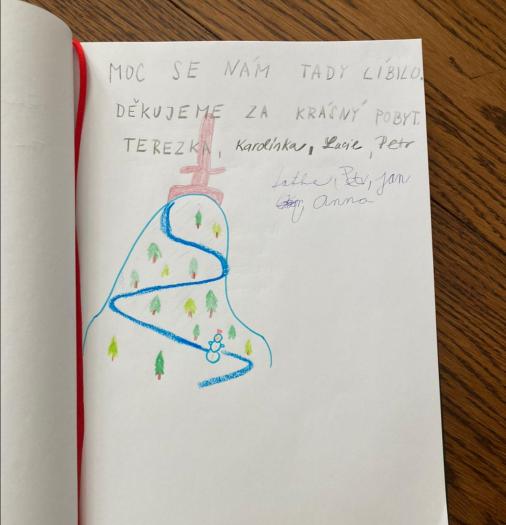 MOC SE NÁM TADY LÍBILO.
DĚKUJEME ZA KRÁSNÝ POBYT.
TEREZKA, Karolínka, Lucie, Petr
Petr, Jan
Anna